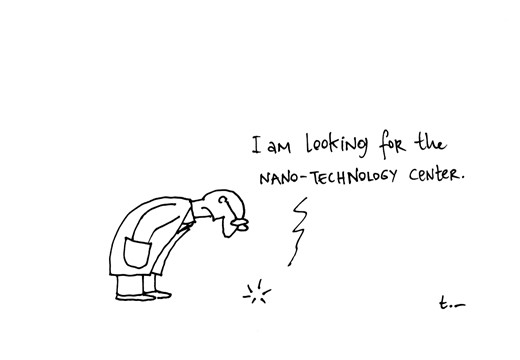 I am looking for the
NANO-TECHNOLOGY center.
t.-